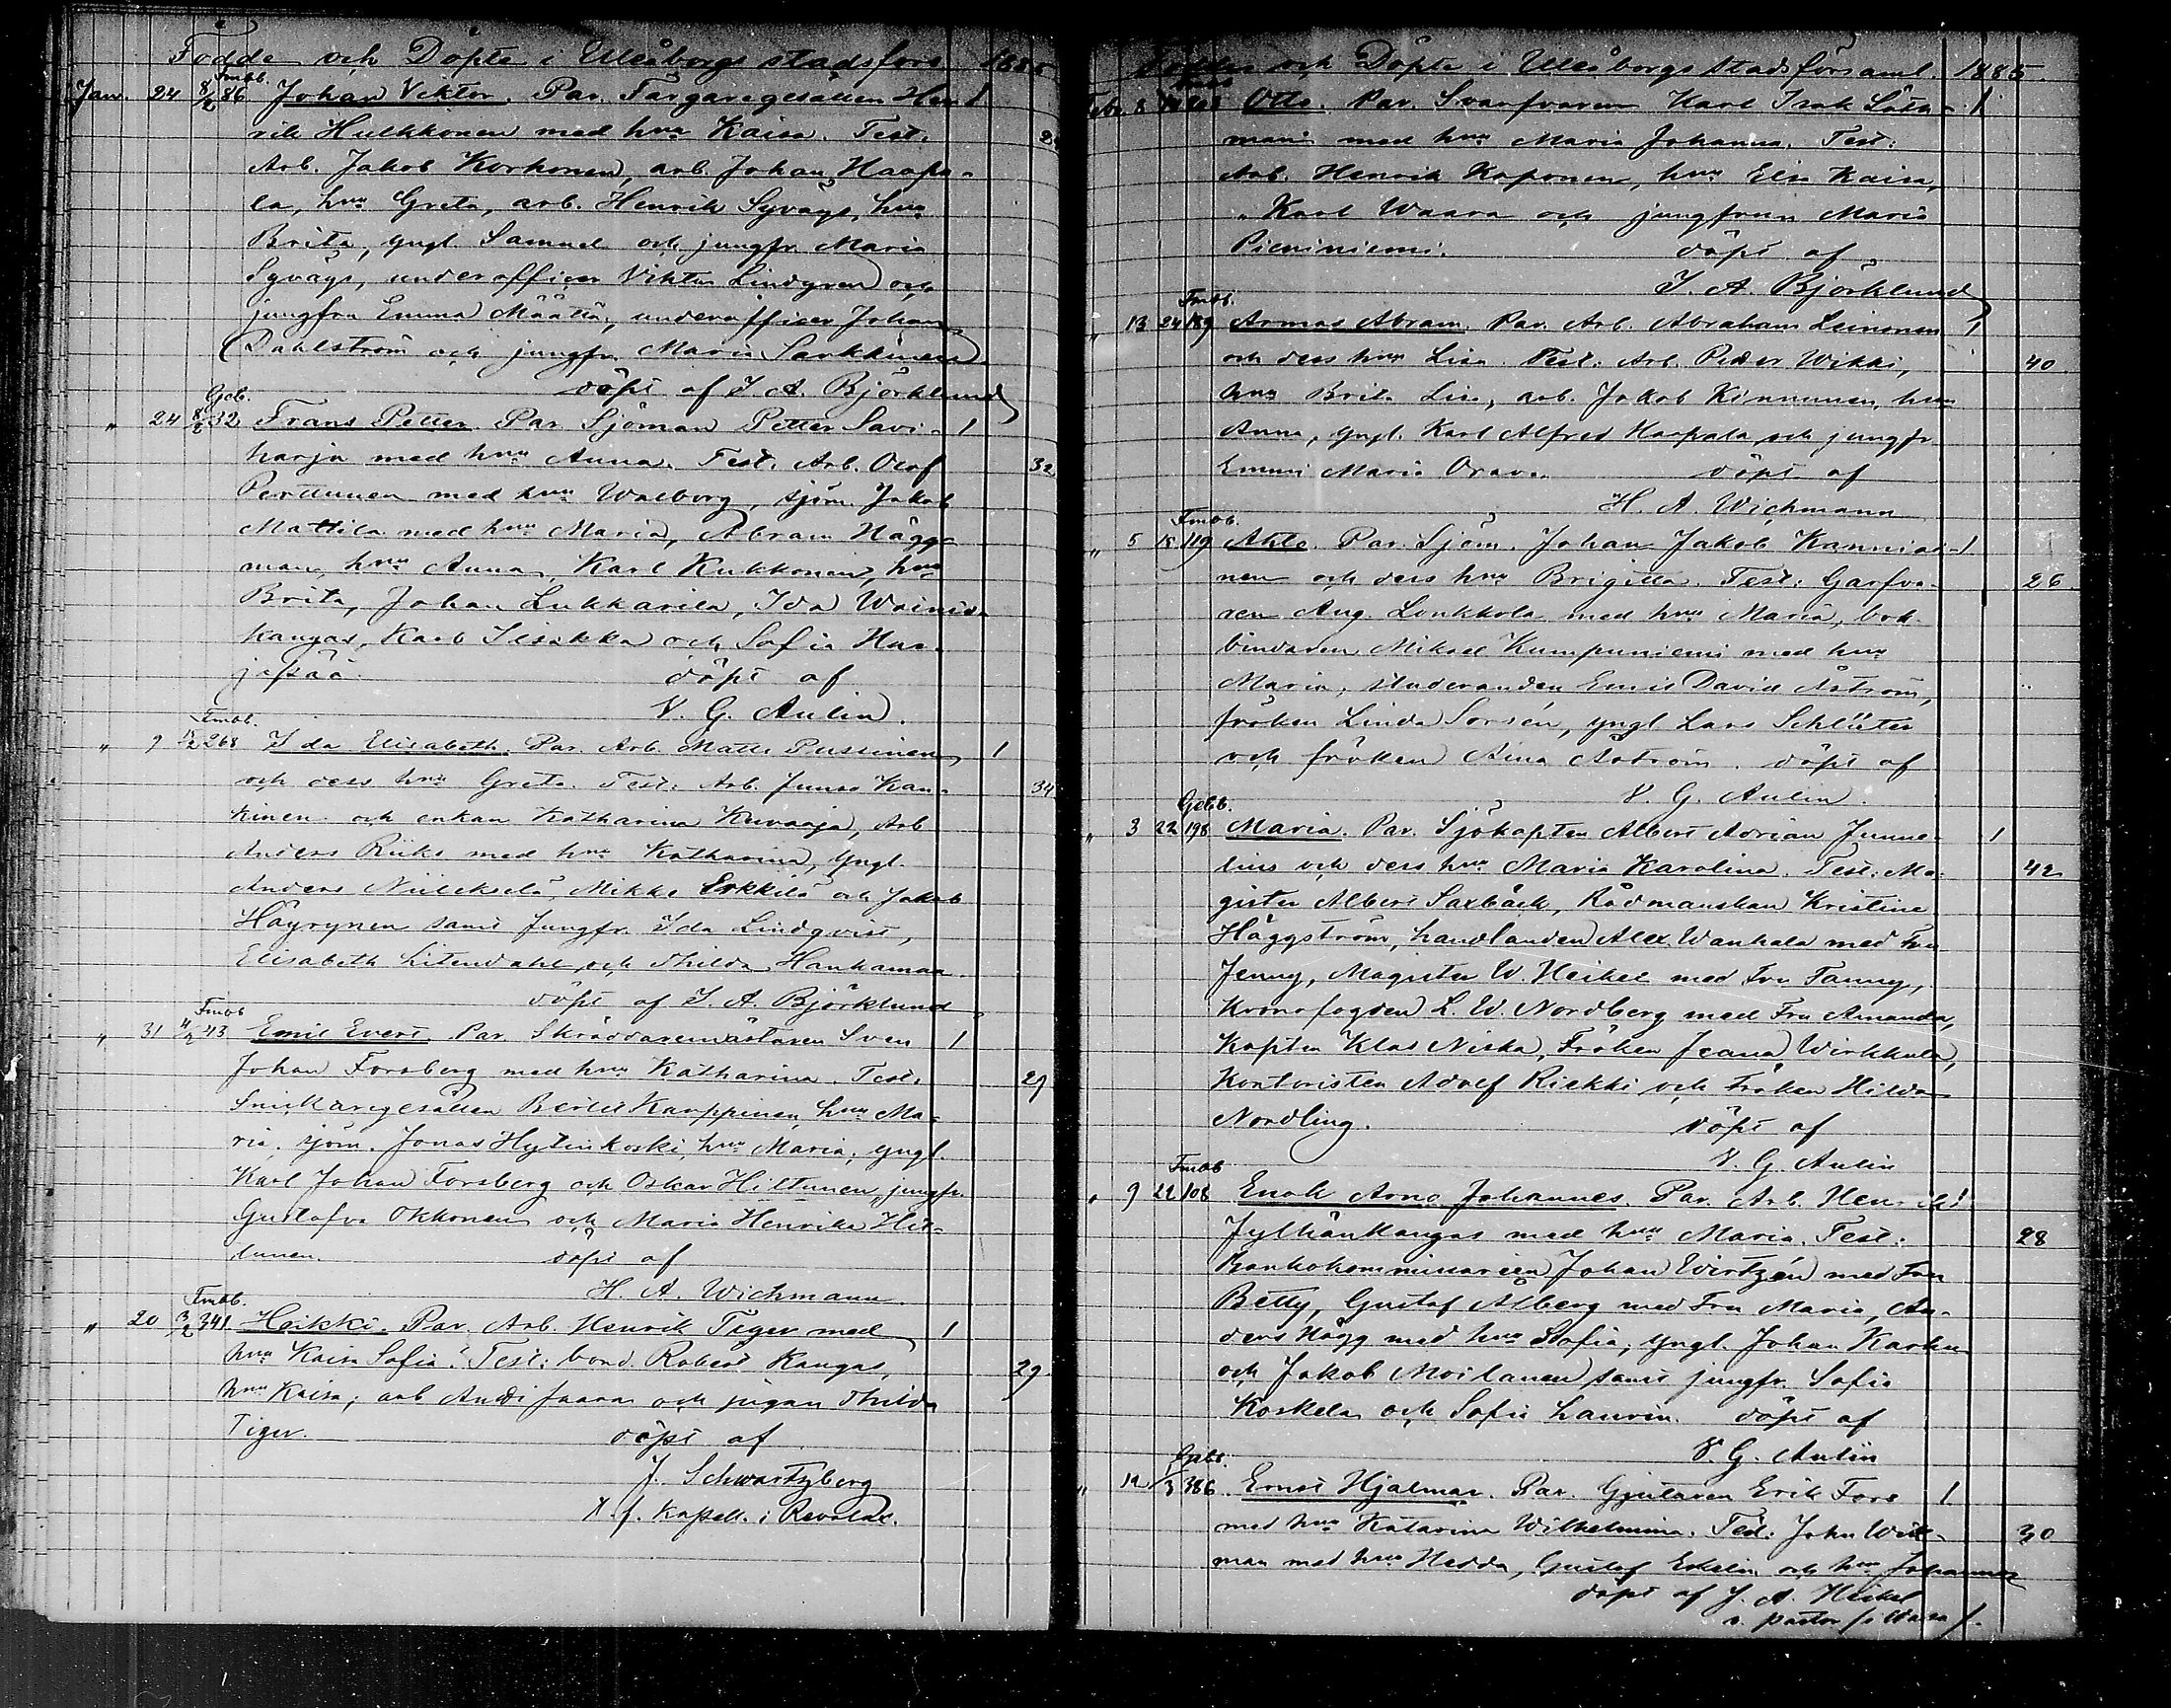 Födde och Döpte i Uleåborgs stadsförs 1885
Fmbb.
Jan. 24 8/2 86 Johan Viktor. Par. Färgaregesällen Hen- 1
rik Hulkkonen med hru Kaisa. Test.
Arb. Jakob Korhonen, arb. Johan Haapa-
la, hru Greta, arb. Henrik Syväys, hru
Brita, yngl Samuel och jungfr. Maria
Syväys, underofficer Viktor Lindgren och
jungfru Emma Määttä, underofficer Johan
Dahlström och jungfr. Maria Sarkkinen
döpt af I. A. Björklund
Gcb.
" 24 8/2 32 Frans Petter. Par. Sjöman Petter Savi- 1
harju med hru Anna. Test. Arb. Olof 32
Perttunen med hru Walborg, sjöm. Jakob
Mattila med hru Maria, Abram Hägg-
man, hru Anna, Karl Kukkonen, hru
Brita, Johan Lukkarila, Ida Wainion
kangas, Karl Iisakka och Sofia Har-
jupää. döpt af
V. G. Aulin.
Fmbb.
" 9 15/2 268 Ida Elisabeth. Par. Arb. Matts Pussinen 1
och dess hru Greta. Test. Arb. Junas Kan- 34
kinen och enkan Katharina Kuvaaja, Arb
Anders Riiks med hru Katharina, yngl.
Anders Niilekselä, Mikko Erkkilä och Jakob
Häyrynen samt Jungfr. Ida Lindqvist,
Elisabeth Litendahl och Thilda Hankamaa.
döpt af I. A. Björklund
Fmbb
" 31 4/2 43 Emil Evert. Par. Skräddaremästaren Sven 1
Johan Forsberg med hru Katharina. Test. 29
Snickaregesällen Bertil Karppinen, hru Ma-
ria, sjöm. Jonas Hytinkoski, hru Maria; yngl.
Karl Johan Forsberg och Oskar Hiltunen, jungfr.
Gustafva Okkonen och Maria Henrika Hil-
tunen. döpt af
H. A. Wichmann.
Fmbb.
" 20 3/2 341 Heikki. Par. Arb. Henrik Tiger med 1
hru Kaisa Sofia. Test: bond. Robert Kangas, 29.
hru Kaisa; arb Antti Jaara och pigan Thilda
Tiger. döpt af
J. Schwartzberg
t. f. kapell. i Revolax.
Födde och Döpte i Uleåborgs stadsförsaml. 1885.
Febr. 8 Otto. Par. Svarfvaren Karl Isak Lötm- 1
mani med hru Maria Johanna. Test:
Arb. Henrik Koponen, hru Elsa Kaisa,
" Karl Waara och jungfrun Maria
Pieniniemi. döpt af
I. A. Björklund
Fmbb.
" 13 24 189 Armas Abram. Par. Arb. Abraham Leinonen 1
och dess hru Lisa. Test: Arb. Peder Wikki, 40
hru Brita Lisa, arb. Jakob Kinnunen, hru
Anna, yngl. Karl Alfred Haapala och jungfr
Emmi Maria Orava. döpt af
H. A. Wichmann
Fmbb.
" 5 15 119 Ahti. Par. Sjöm. Johan Jakob Kanniai- 1
nen och dess hru Brigitta. Test: Garfva- 26
ren Aug. Lonkkola med hru Maria, bok-
bindaren Mikael Kumpuniemi med hru
Maria, studeranden Emil David Åström,
fröken Linda Sorsén, yngl Lars Schlüter
och fröken Aina Åström. döpt af
V. G. Aulin.
Gcbb.
" 3 22 198 Maria. Par. Sjökapten Albert Adrian Junne- 1
lius och dess hru Maria Karolina. Test. Ma- 42
gister Albert Saxbäck, Rådmanskan Kristine
Häggström, handlanden Alex Wanhala med Fru
Jenny, Magister W. Heikel med Fru Fanny,
Kronofogden L. W. Nordberg med Fru Amanda,
Kapten Klas Niska, Fröken Jeana Wirkkula,
Kontoristen Adolf Riekki och Fröken Hilda
Nordling. döpt af
V. G. Aulin
Fmbb
" 9 22 108 Enok Arno Johannes. Par. Arb. Henrik 1
Jylhänkangas med hru Maria. Test: 28
Bankokommissarien Johan Wirtzén med Fru
Betty, Gustaf Ålberg med Fru Maria, An-
ders Hägg med hru Sofia; yngl. Johan Karhu
och Jakob Moilanen samt jungfr. Sofia
Koskela och Sofie Laurin. döpt af
V. G. Aulin
Gcbb.
" 12 1/3 386. Ernst Hjalmar. Par. Gjutaren Erik Fors 1
med hru Katarina Wilhelmina. Test: John Wik- 30
man med hru Hedda, Gustaf Eskelin och hru Johanna
döpt af J. A. Heikel
v. pastor